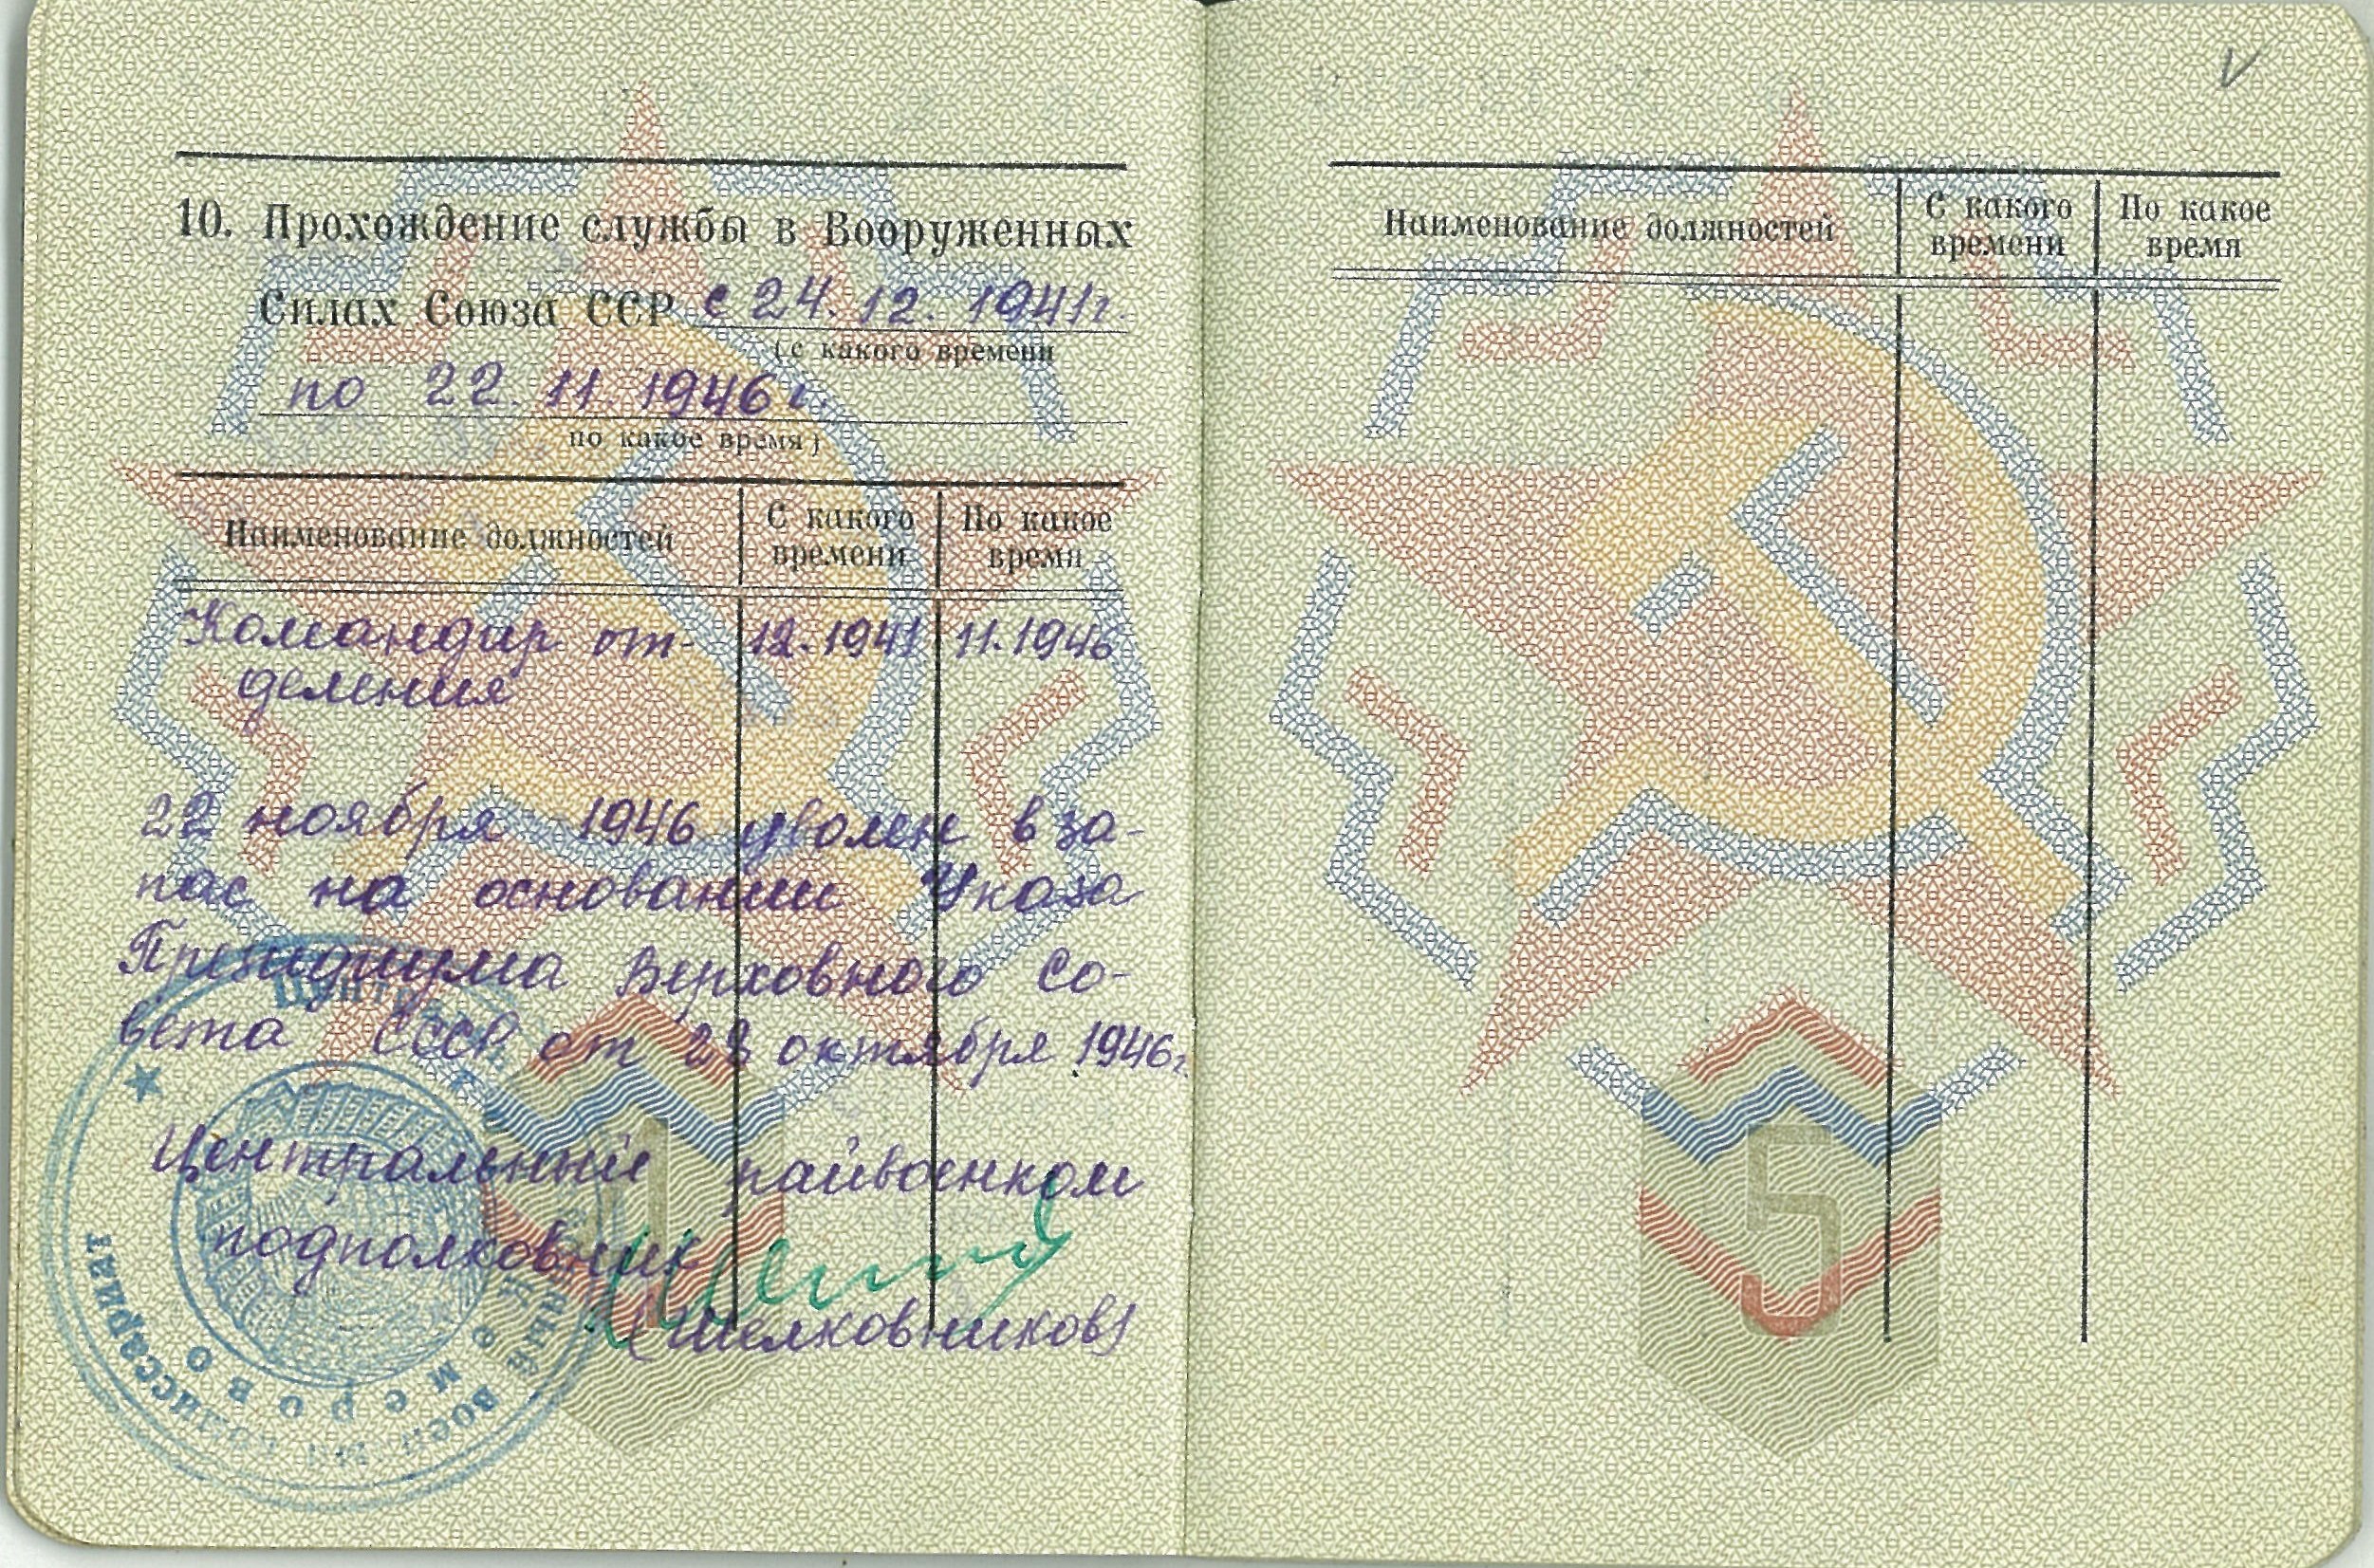 10. Прохождение службы в Вооруженных
Силах Союза ССР с 24. 12. 1941г.
(с какого времени
по 22. 11. 1946 г.
по какое время)
Наименование должностей С какого времени По какое время
Командир от- 12.1941 11.1946
деления
22 ноября 1946 уволен в за-
пас на основании Указа
Президиума Верховного Со-
вета СССР от 28 октября 1946г.
Центральный райвоенком
подполковник
(Шелковников)
Кемерово
комиссариат
1
V
Наименование должностей С какого времени По какое время
5